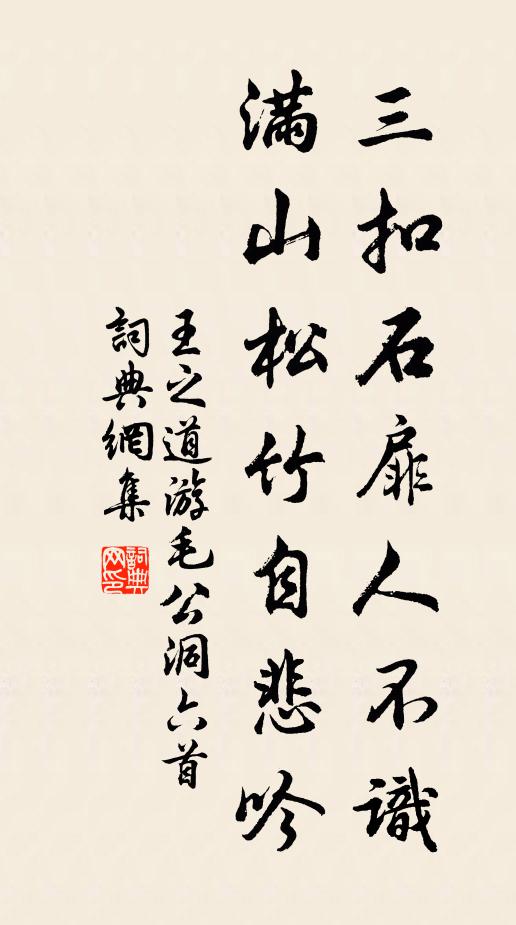 三扣石扉人不識
滿山松竹自悲吟
王之道游毛公洞六首
詞典網集
詞典网印